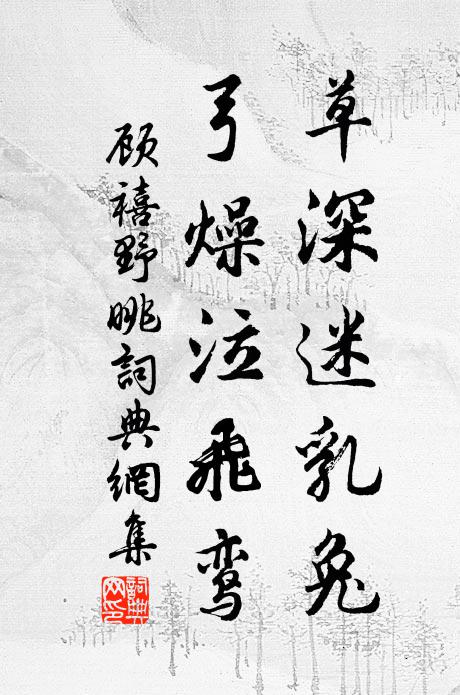 草深迷乳兔
弓燥泣飛鸾
顾禧野眺詞典網集
詞典網印